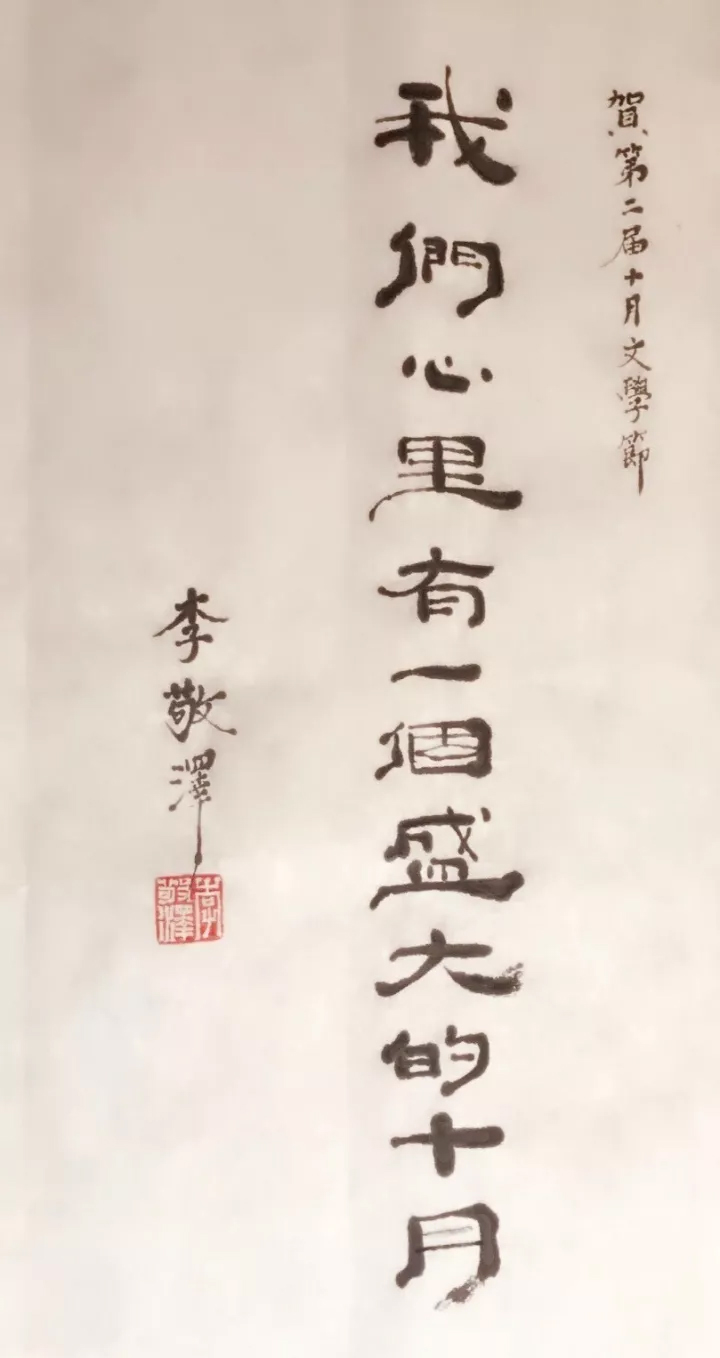 賀第二届十月文學節
我們心里有一個盛大的十月
李敬澤
李敬澤